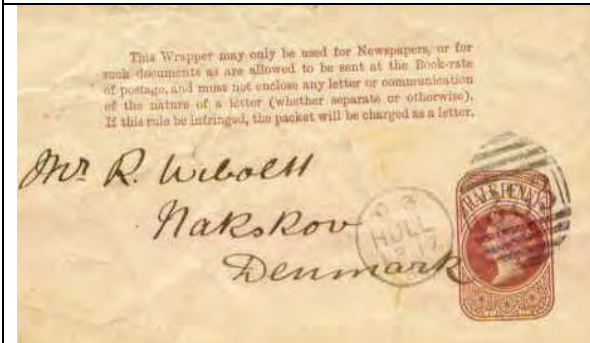 This Wrapper may only be used for Newspapers, or for
such documents as are allowed to be sent at the Book-rate
of postage, and must not enclose any letter or communication
of the nature of a letter (whether separate or otherwise).
If this rule be infringed, the packet will be charged as a letter.
Mr R. Wiboltt
Nakskov
Denmark
HULL
HALFPENNY